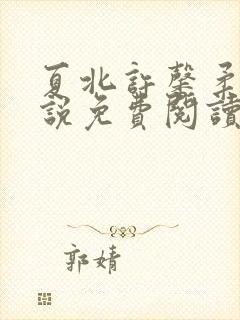 夏北許馨柔
說免費閱讀
郭婧